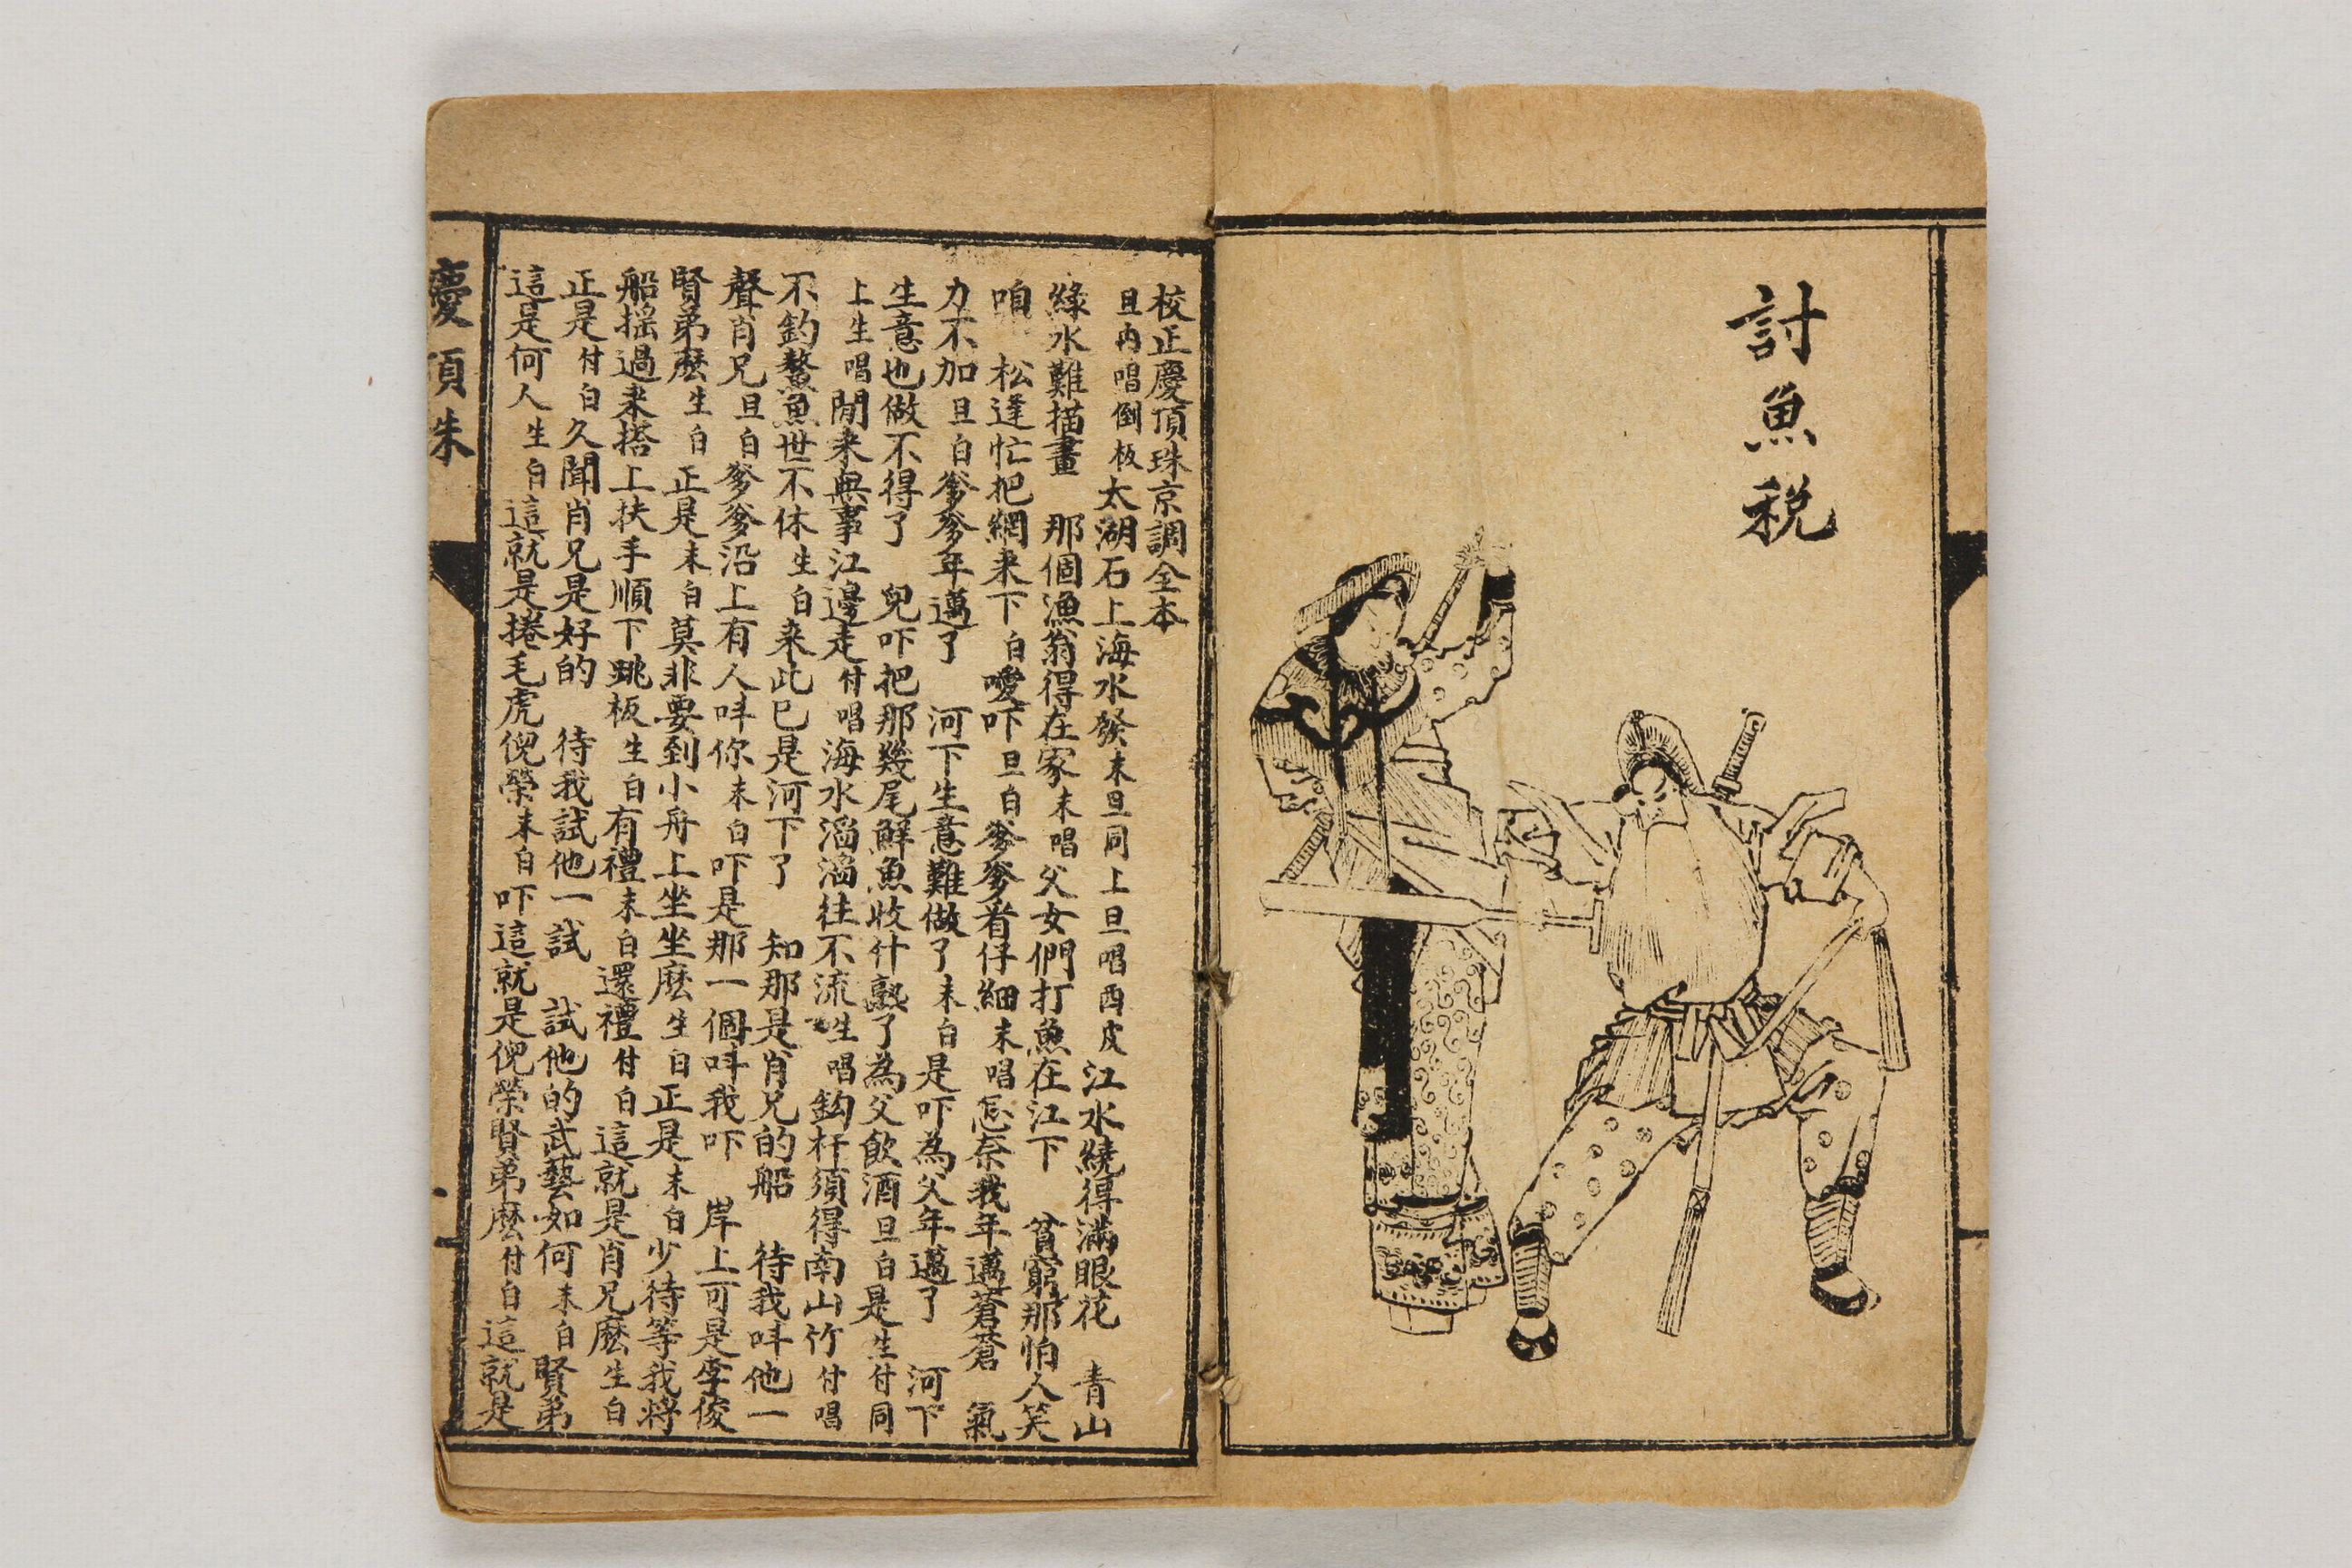 討魚稅
校正慶頂珠京調全本
旦內唱倒板太湖石上海水發末旦同上旦唱西皮江水繞得滿眼花 青山
綠水難描畫 那個漁翁得在家末唱父女們打魚在江下 貧窮那怕人笑
咱 松逢忙把網来下白噯吓旦白爹爹看仔細末唱怎奈我年邁蒼蒼 氣
力不加旦白爹爹年邁了 河下生意難做了末白是吓為父年邁了 河下
生意也做不得了 兒吓把那幾尾鮮魚收什熟了為父飲酒旦白是生付同
上生唱閒来無事江邊走付唱海水滔滔往不流生唱鈎杆須得南山竹付唱
不釣鰲魚世不休生白来此已是河下了 知那是肖兄的船 待我呌他一
聲肖兄旦白爹爹沿上有人呌你末白吓是那一個呌我吓 岸上可是李俊
賢弟麽生白正是末白莫非要到小舟上坐坐麽生白正是末白少待等我將
船摇過来搭上扶手順下跳板生白有禮末白還禮付白這就是肖兄麽生白
正是付白久聞肖兄是好的 待我試他一試 試他的武藝如何末白賢弟
這是何人生白這就是捲毛虎倪榮末白吓這就是倪榮賢弟麽付白這就是
慶頂珠